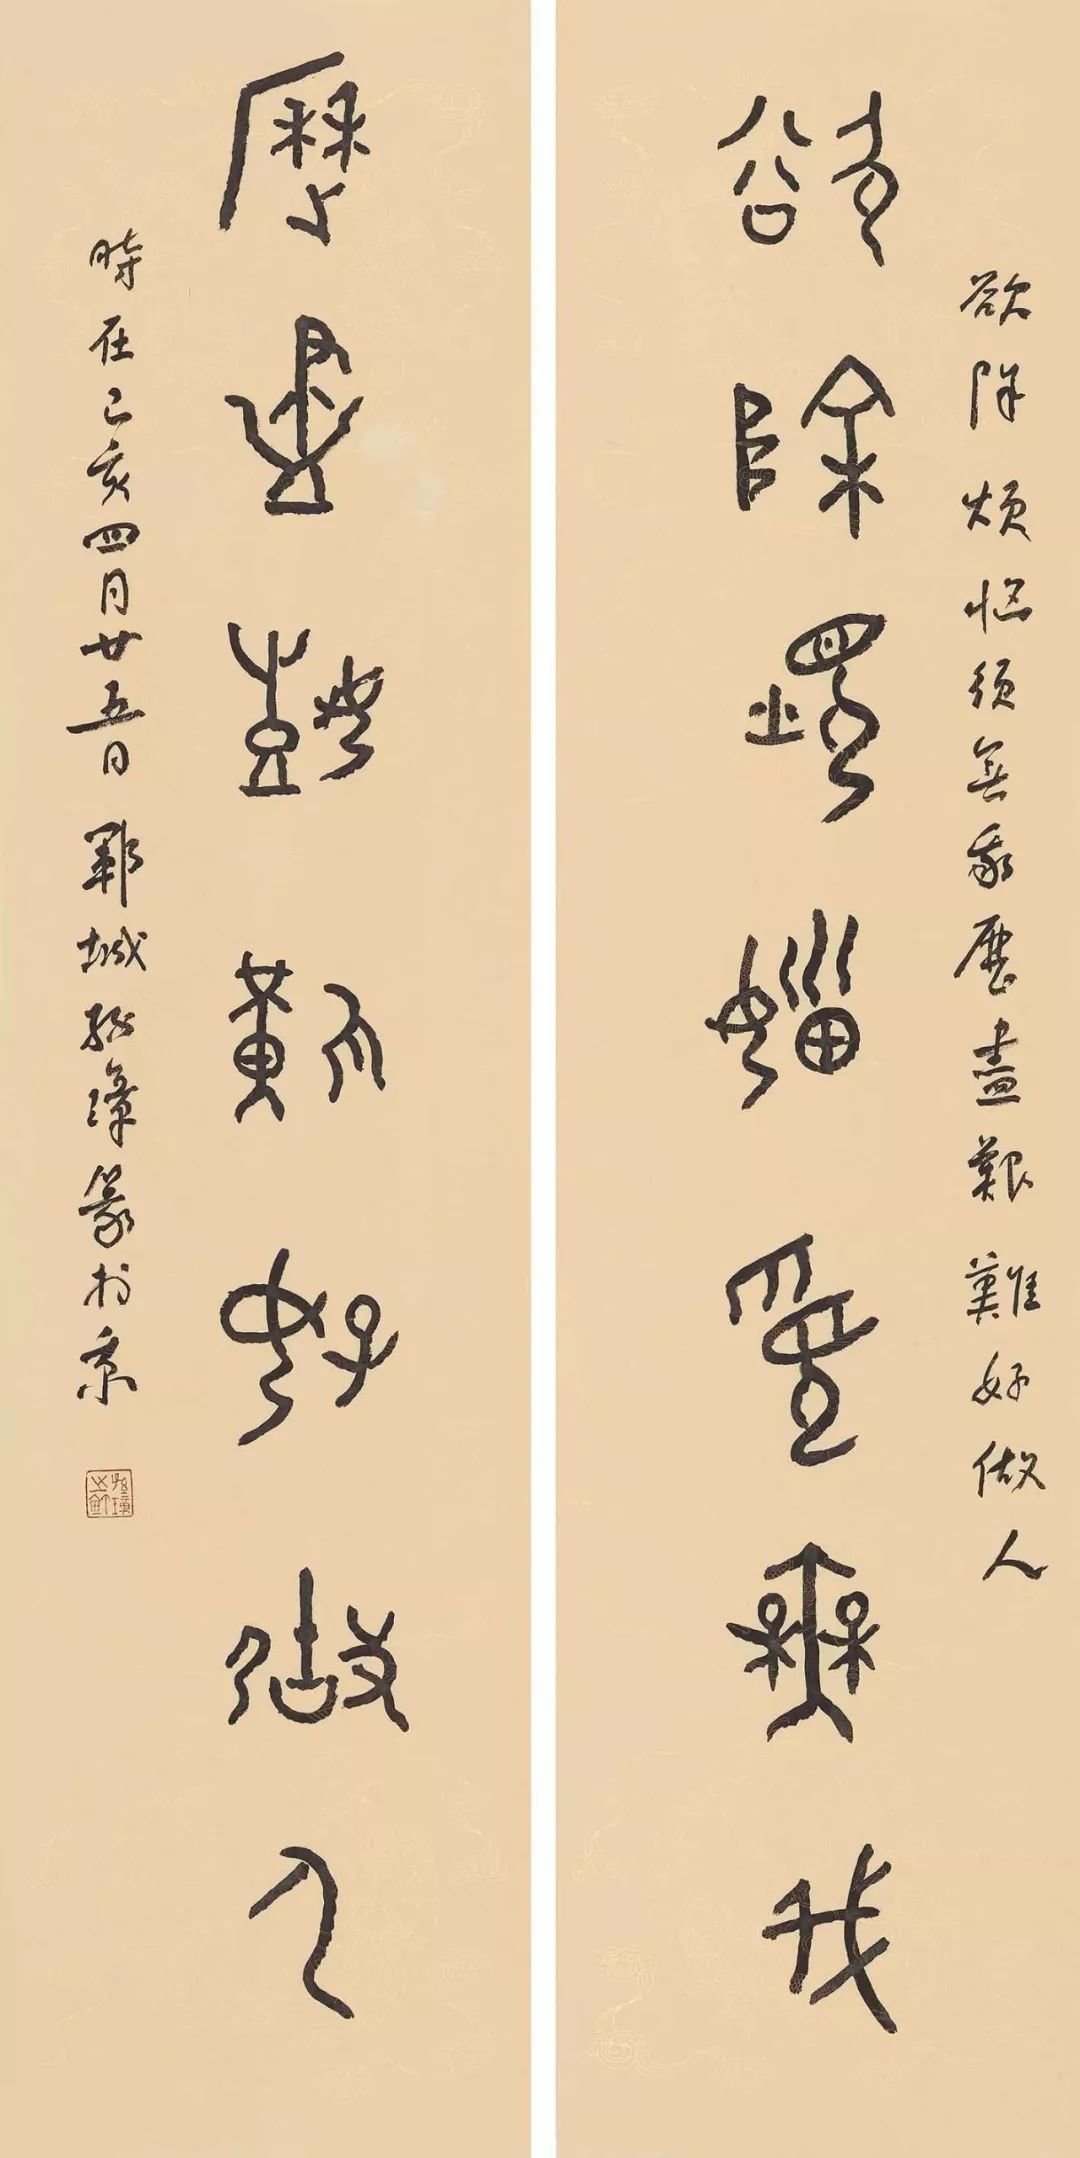 欲除煩惱須無我歷盡艱難好做人
欲除煩惱須無我
歷盡艱難好做人
時在己亥四月廿五日鄆城孫璋篆於京
孫璋之鉥